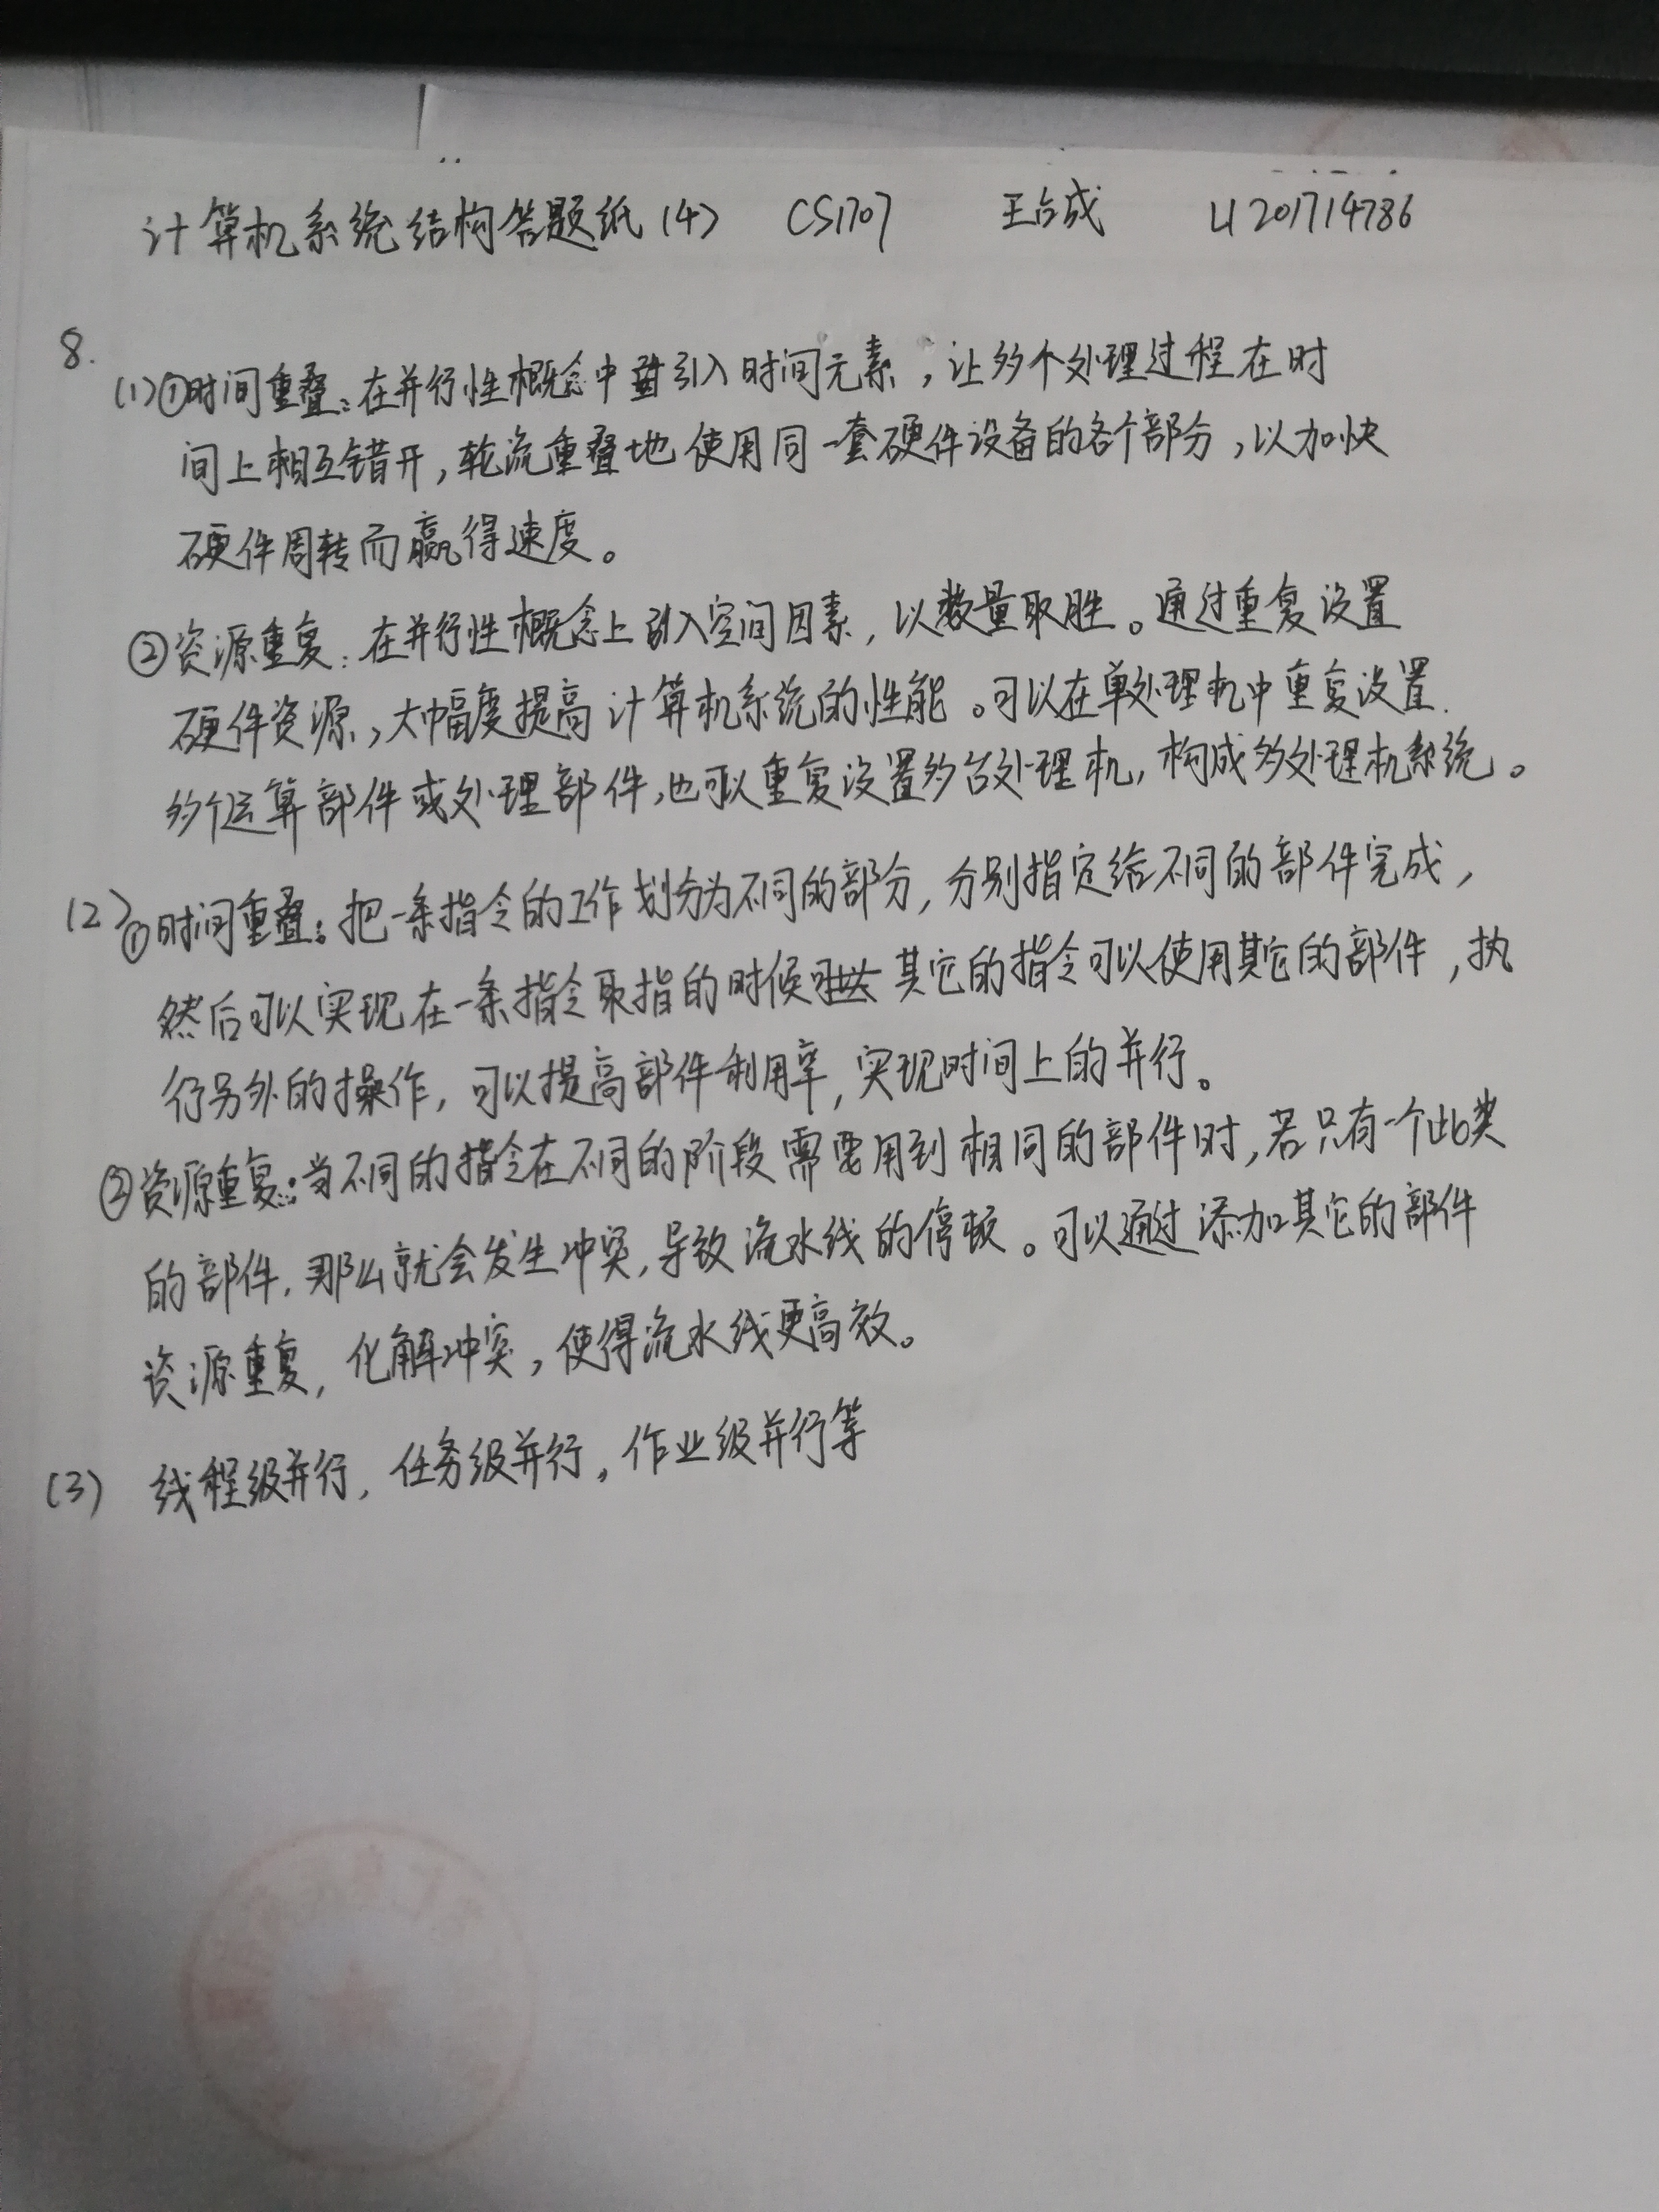 计算机系统结构答题纸(4) CS1707 王占成 U201714786
8.
(1)①时间重叠:在并行性概念中引入时间元素,让多个处理过程在时
间上相互错开,轮流重叠地使用同一套硬件设备的各个部分,以加快
硬件周转而赢得速度。
②资源重复:在并行性概念上引入空间因素,以数量取胜。通过重复设置
硬件资源,大幅度提高计算机系统的性能。可以在单处理机中重复设置
多个运算部件或处理部件,也可以重复设置多台处理机,构成多处理机系统。
(2)①时间重叠:把一条指令的工作划分为不同的部分,分别指定给不同的部件完成,
然后可以实现在一条指令取指的时候其它的指令可以使用其它的部件,执
行另外的操作,可以提高部件利用率,实现时间上的并行。
②资源重复:当不同的指令在不同的阶段需要用到相同的部件时,若只有一个此类
的部件,那么就会发生冲突,导致流水线的停顿。可以通过添加其它的部件
资源重复,化解冲突,使得流水线更高效。
(3) 线程级并行,任务级并行,作业级并行等